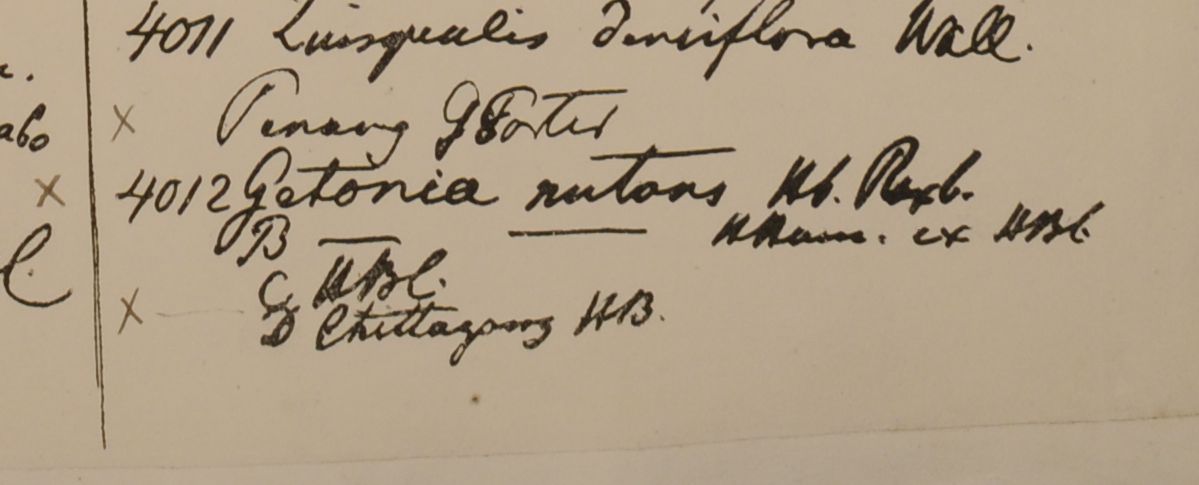 4011 Quisqualis densiflora Wall.
abo × Penang G Porter
× 4012 Getonia nutans Hb. Roxb.
B — — HHam. ex HBC.
C HBC.
× D Chittagong HB.